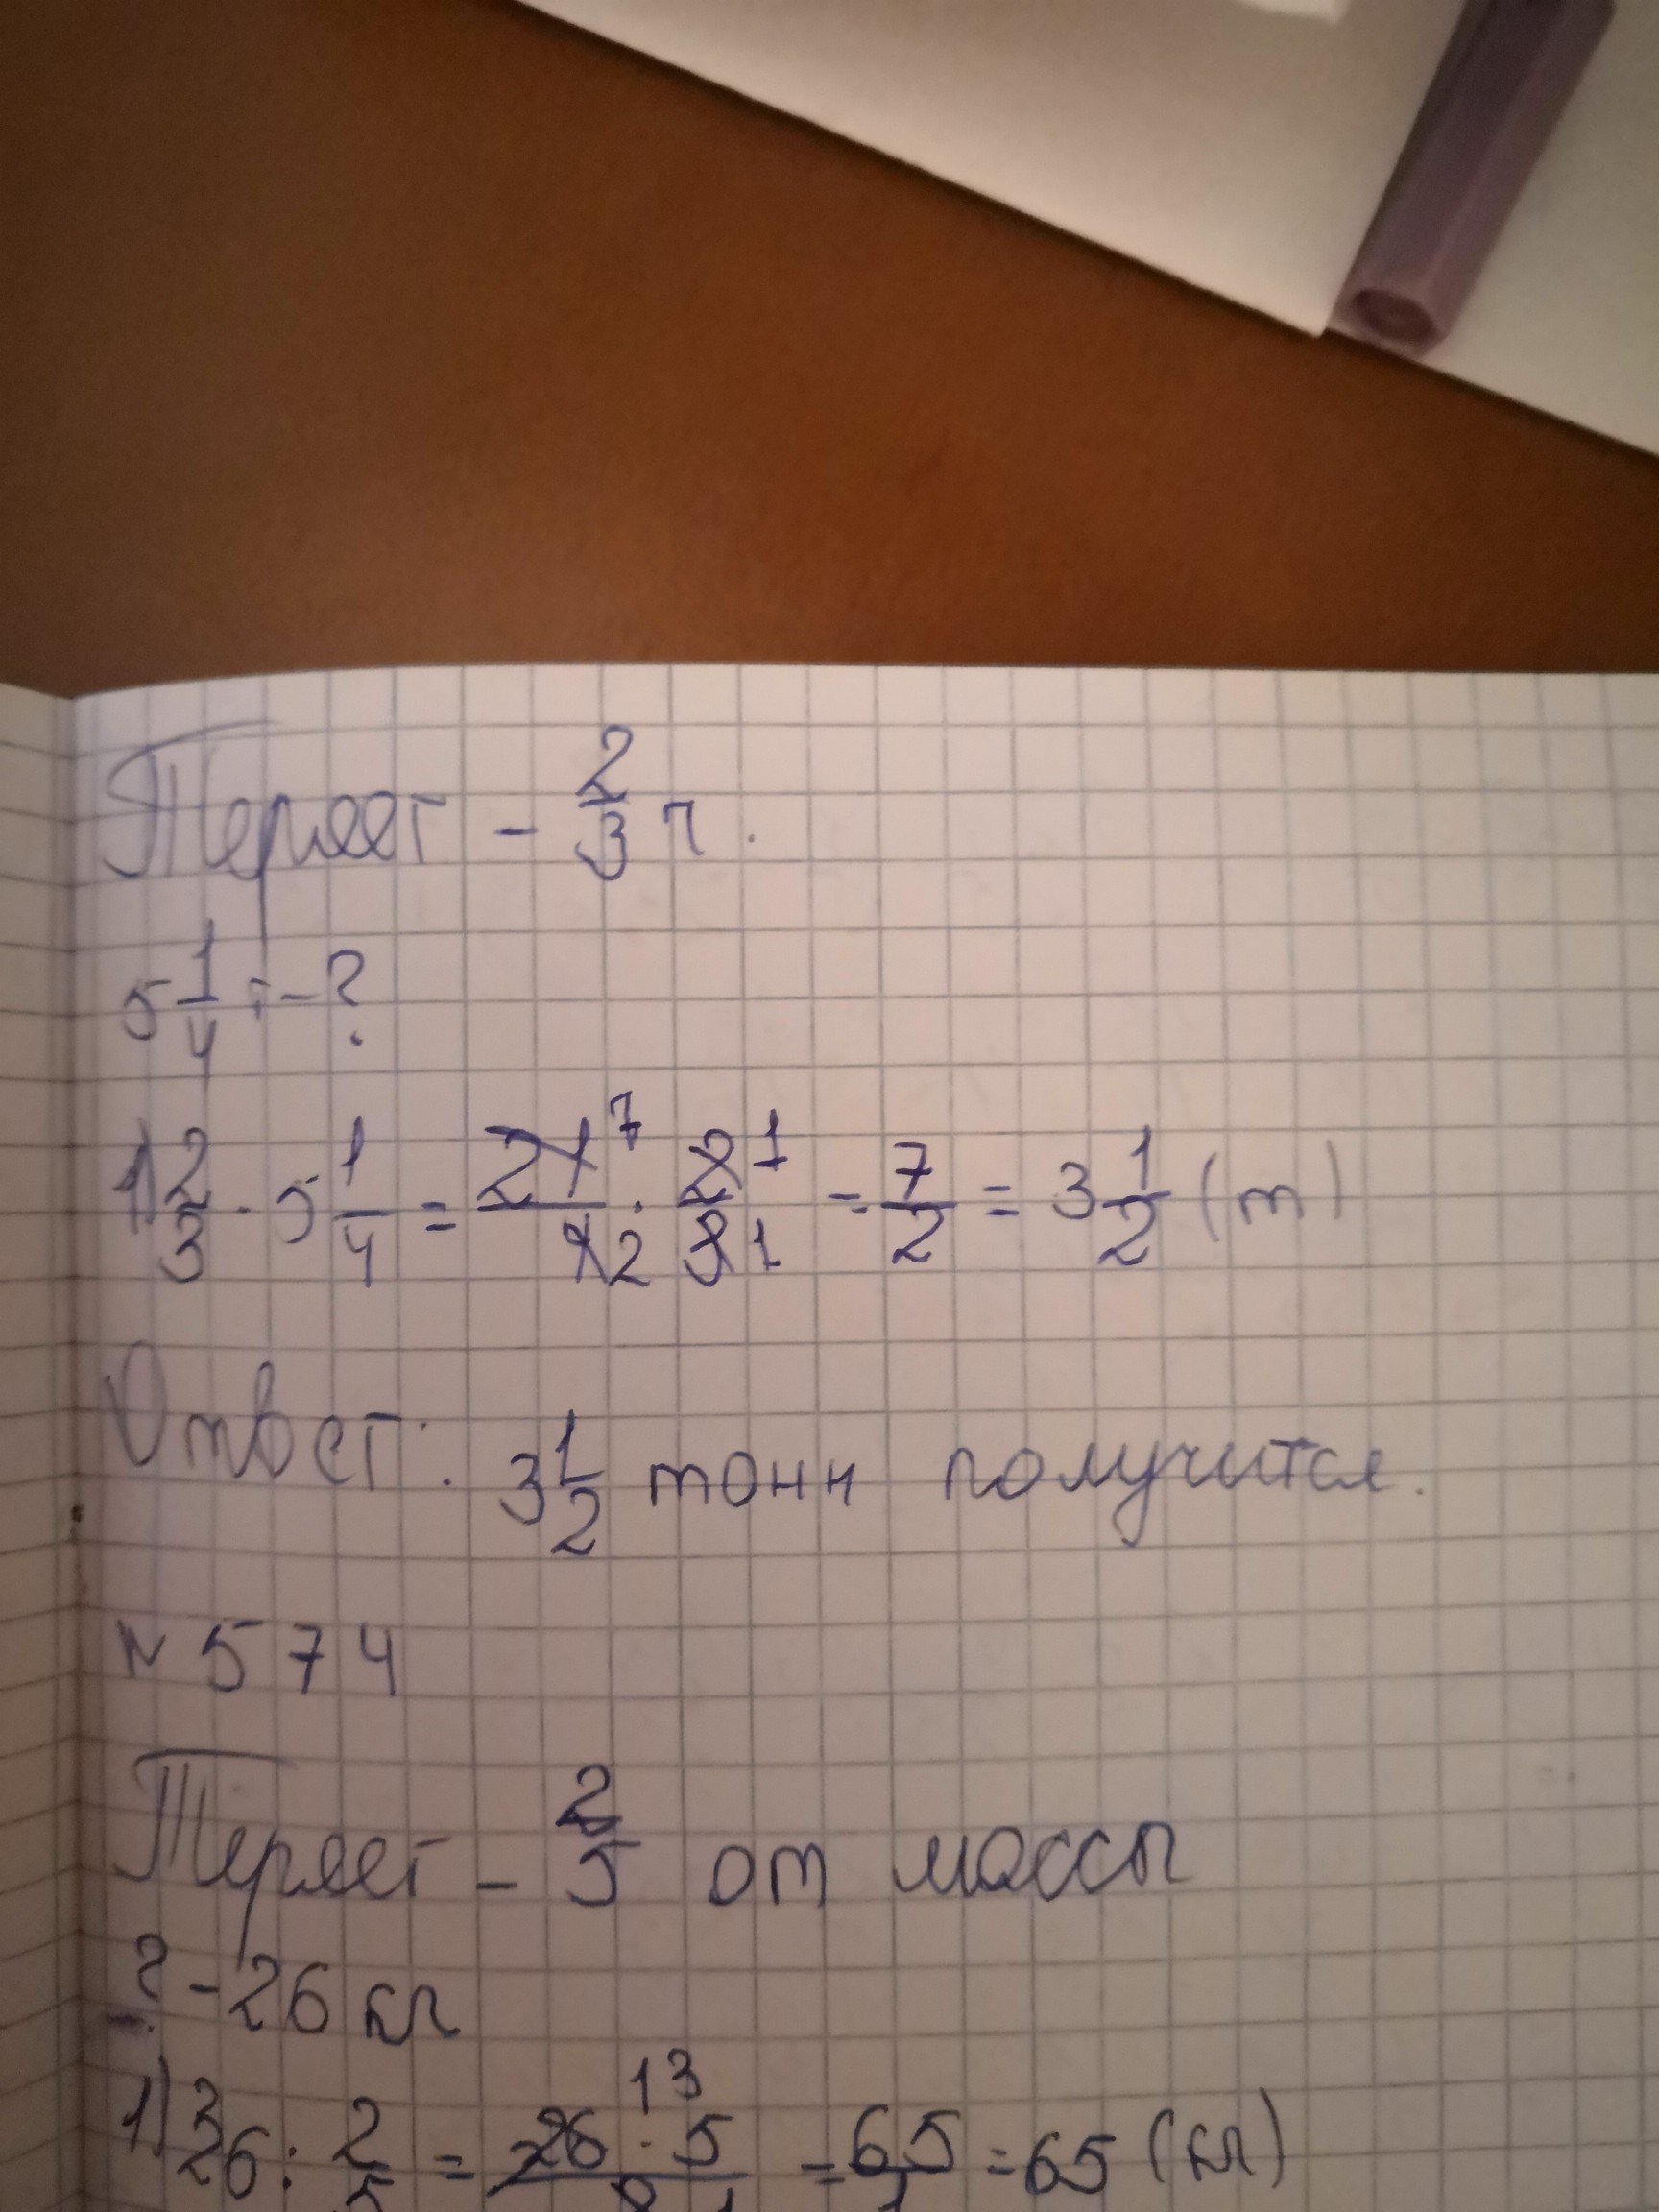 Теряет - 2/3 т.
5 1/4 т - ?
1) 2/3 · 5 1/4 = 21 7/4 2 · 2 1/3 1 = 7/2 = 3 1/2 (т)
Ответ: 3 1/2 тонн получится.
№ 574
Теряет - 2/5 от массы
? - 26 кг
1) 26 : 2/5 = 26 13 · 5/2 1 = 65/1 = 65 (кг)